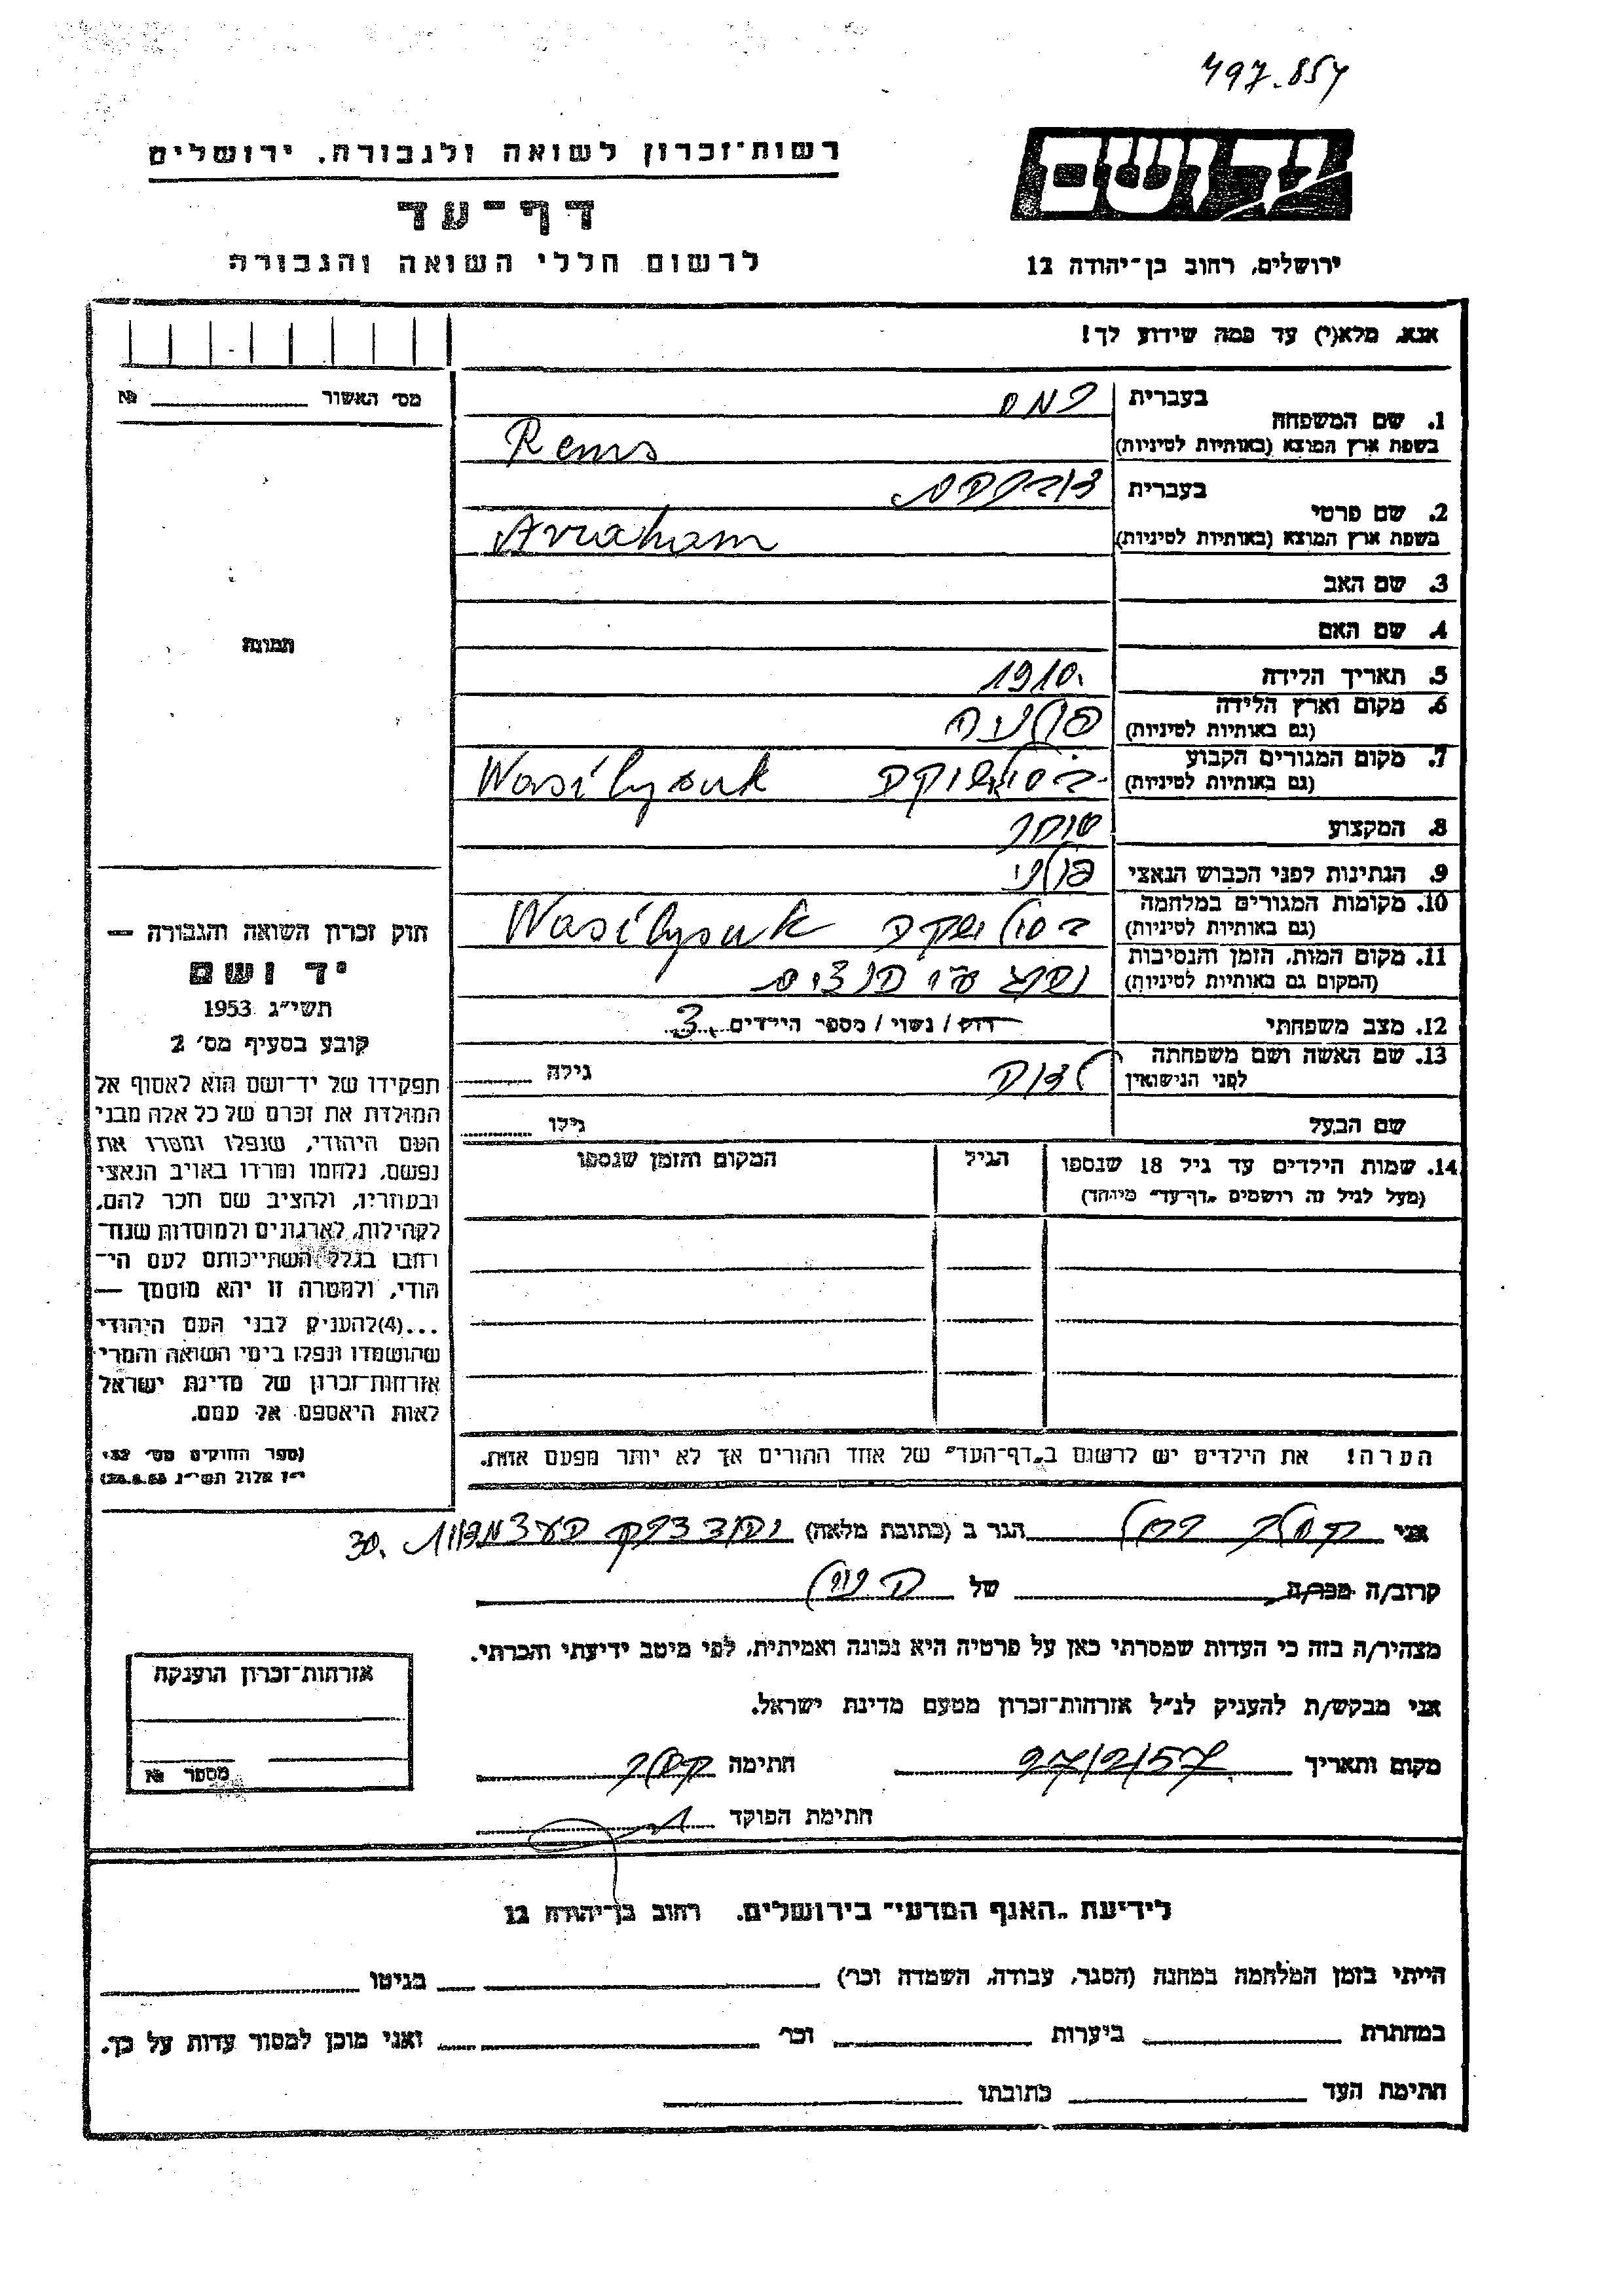 497.854
יד ושם
רשות־זכרון לשואה ולגבורה, ירושלים
דף־עד
ירושלים, רחוב בן־יהודה 12
לרשום חללי השואה והגבורה
אנא, מלא(י) עד כמה שידוע לך!
מס׳ האשור №
1. שם המשפחה
בעברית רמס
בשפת ארץ המוצא (באותיות לטיניות) Rems
2. שם פרטי
בעברית אברהם
בשפת ארץ המוצא (באותיות לטיניות) Avraham
3. שם האב
4. שם האם
תמונה
5. תאריך הלידה 1910.
6. מקום וארץ הלידה
(גם באותיות לטיניות)
7. מקום המגורים הקבוע Wasilyszuk
(גם באותיות לטיניות)
8. המקצוע סוחר
9. הנתינות לפני הכבוש הנאצי פולני
10. מקומות המגורים במלחמה
(גם באותיות לטיניות)
11. מקום המות, הזמן והנסיבות
(המקום גם באותיות לטיניות)
12. מצב משפחתי רוק / נשוי / מספר הילדים 3
13. שם האשה ושם משפחתה
לפני הנישואין
גילה
שם הבעל גילו
14. שמות הילדים עד גיל 18 שנספו הגיל המקום והזמן שנספו
(מעל לגיל זה רושמים „דף־עד” מיוחד)
הערה! את הילדים יש לרשום ב„דף־העד” של אחד ההורים אך לא יותר מפעם אחת.
חוק זכרון השואה והגבורה —
יד ושם
תשי״ג 1953
קובע בסעיף מס׳ 2
תפקידו של יד־ושם הוא לאסוף אל
המולדת את זכרם של כל אלה מבני
העם היהודי, שנפלו ומסרו את
נפשם, נלחמו ומרדו באויב הנאצי
ובעוזריו, ולהציב שם וזכר להם,
לקהילות, לארגונים ולמוסדות שנח־
רבו בגלל השתייכותם לעם הי־
הודי, ולמטרה זו יהא מוסמך —
...(4)להעניק לבני העם היהודי
שהושמדו ונפלו בימי השואה והמרי
אזרחות־זכרון של מדינת ישראל
לאות היאספם אל עמם.
(ספר החוקים מס׳ 132,
י״ז אלול תשי״ג 28.8.53)
אני הגר ב (כתובת מלאה) 30.
קרוב/ה מכר/ה של
מצהיר/ה בזה כי העדות שמסרתי כאן על פרטיה היא נכונה ואמיתית, לפי מיטב ידיעתי והכרתי.
אני מבקש/ת להעניק לנ״ל אזרחות־זכרון מטעם מדינת ישראל.
מקום ותאריך 27/2/57 חתימה
חתימת הפוקד
אזרחות־זכרון הוענקה
מספר №
לידיעת „האגף המדעי” בירושלים, רחוב בן־יהודה 12
הייתי בזמן המלחמה במחנה (הסגר, עבודה, השמדה וכו׳) בגיטו
במחתרת ביערות וכו׳ ואני מוכן למסור עדות על כך.
חתימת העד כתובתו